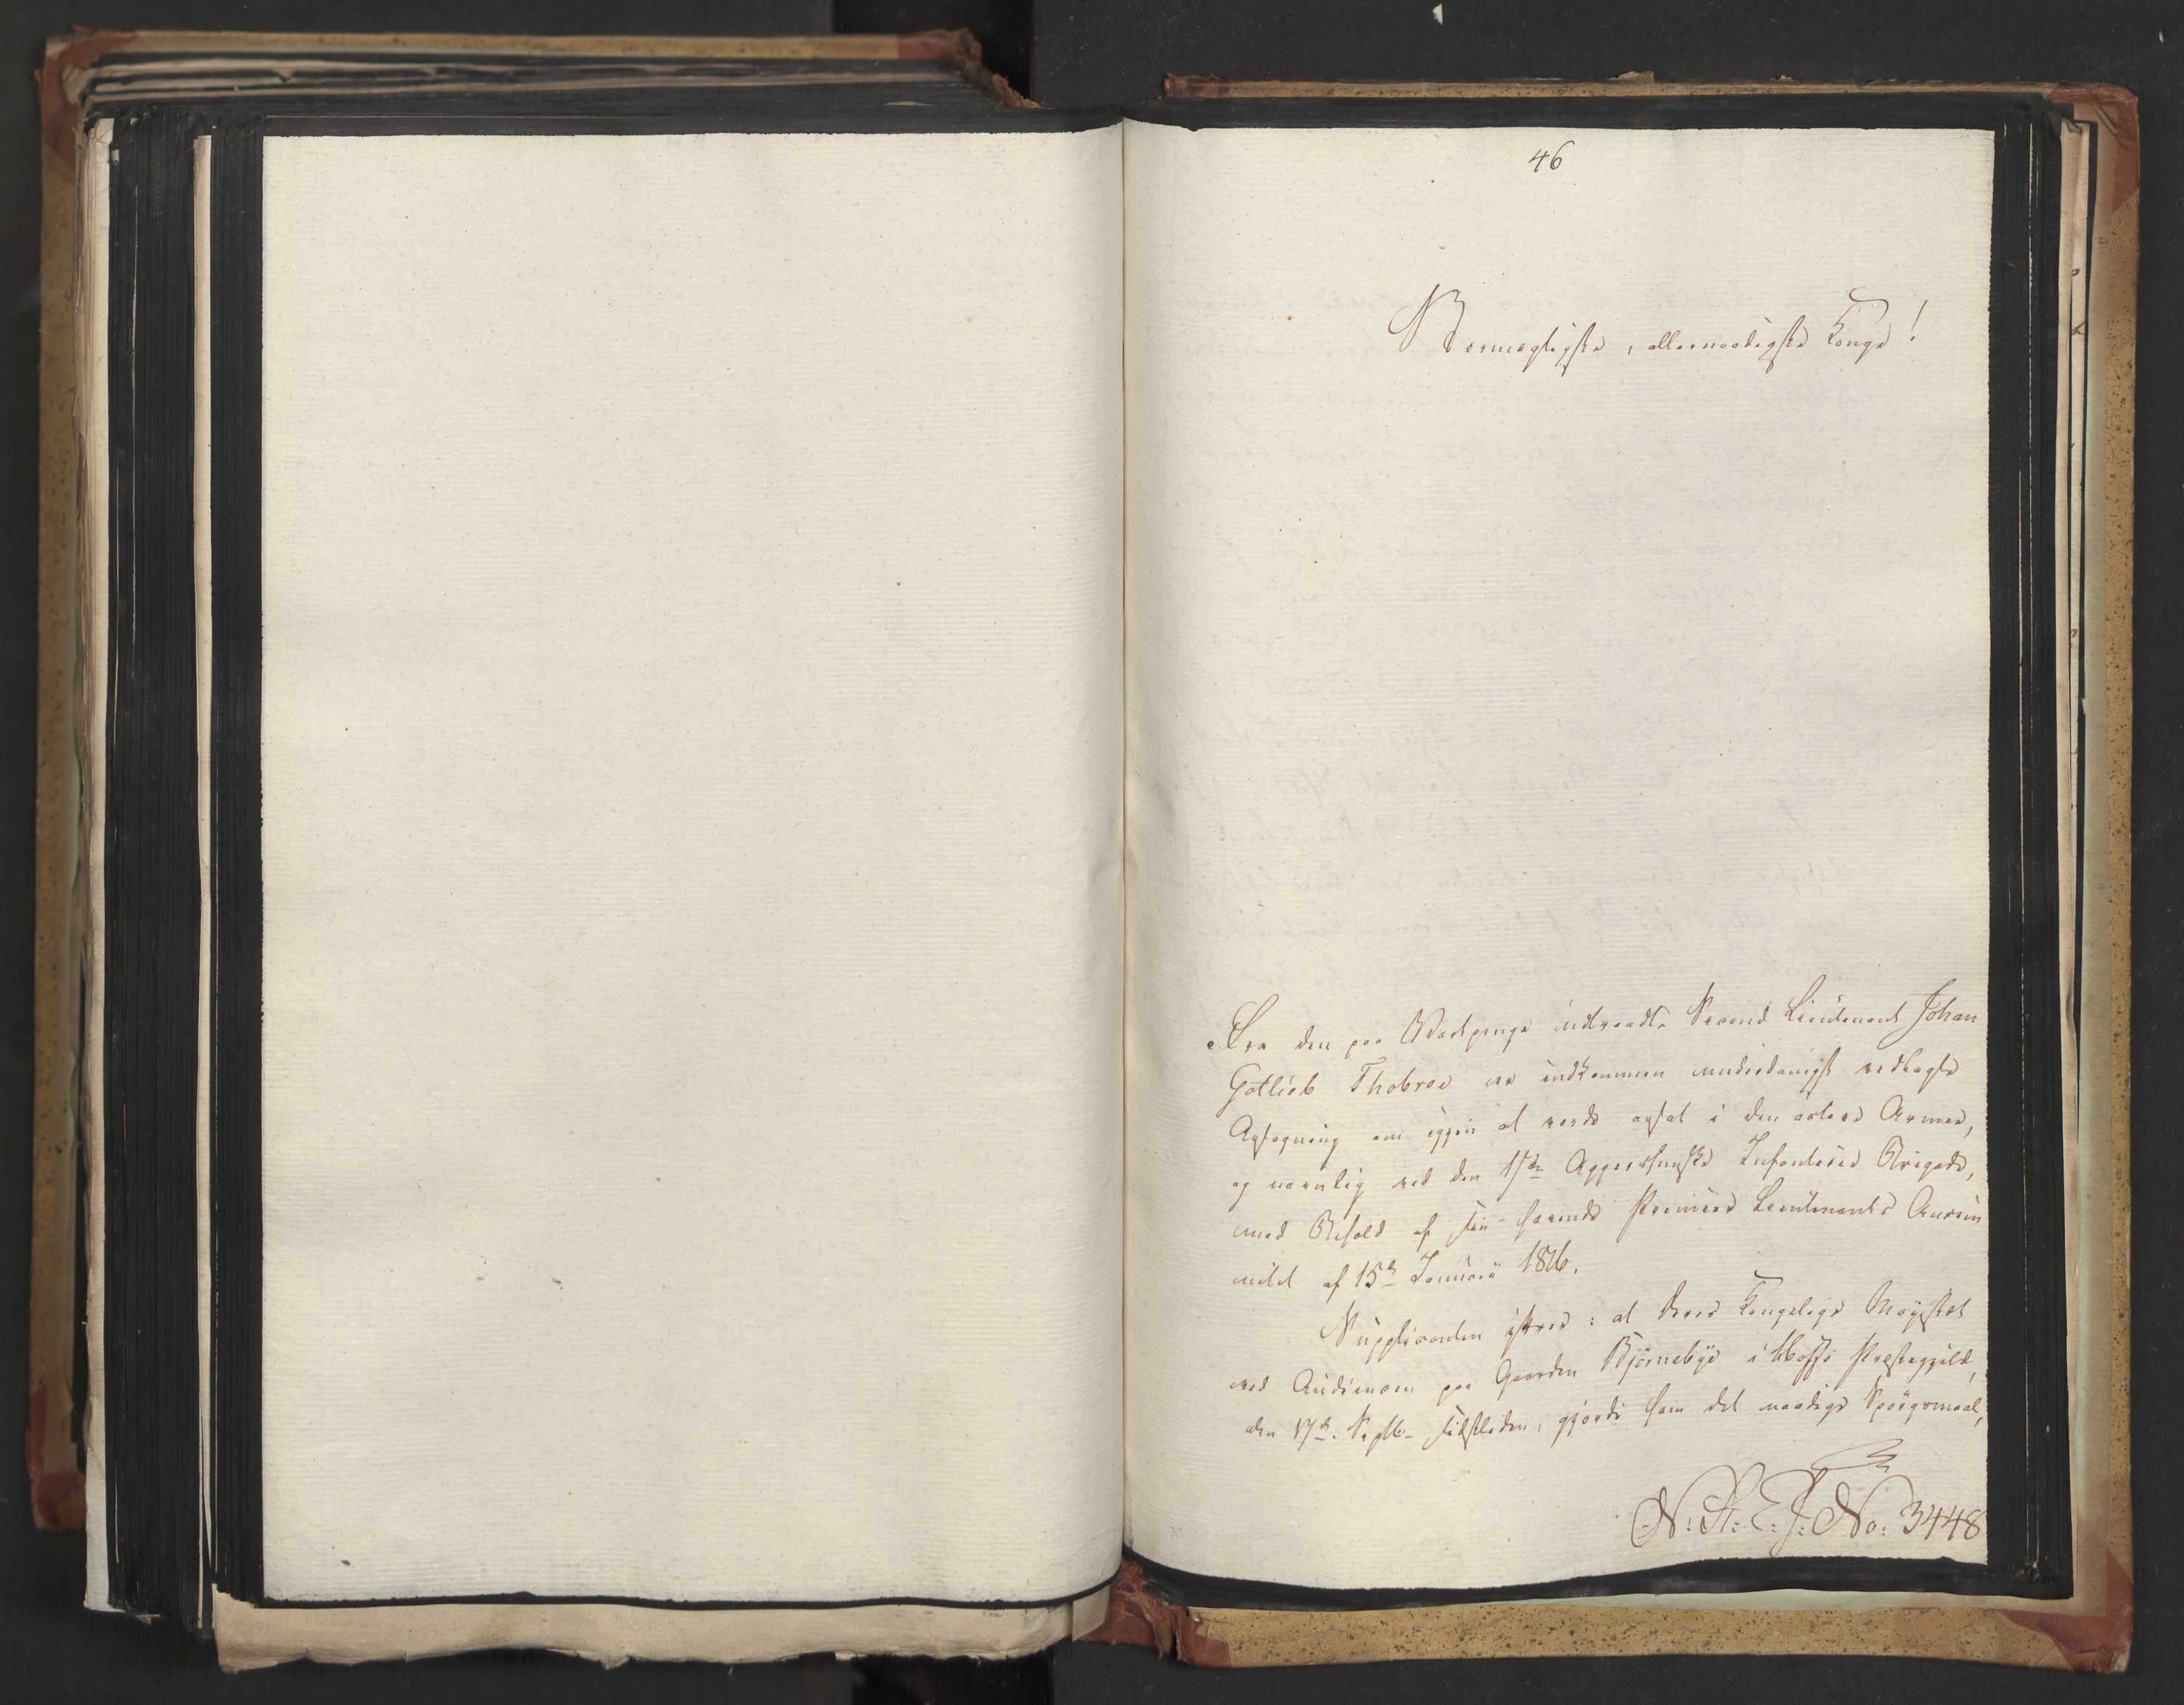 46
Stormægtigste, allernaadigste Konge!
Fra den paa Vartpenge indtraadte Second Lieutenant Johan
Gotlieb Thobroe er indkommen underdanigst vedlagte
Ansøgning om igjen at vorde ansat i den active Armee,
og navnlig ved den 1ste Aggershuuske Infanterie Brigade,
med Behold af sin havende Premier Lieutenants Ancien-
nitet af 15de Januarii 1816.
Supplicanten yttrer: at Deres Kongelige Majestæt
ved Audiencen paa Gaarden Bjørnebye i Moss Præstegjeld,
den 17de Septbr sidstleden, gjorde ham det naadige Spörgsmaal,
N: St: E: J: No: 3448